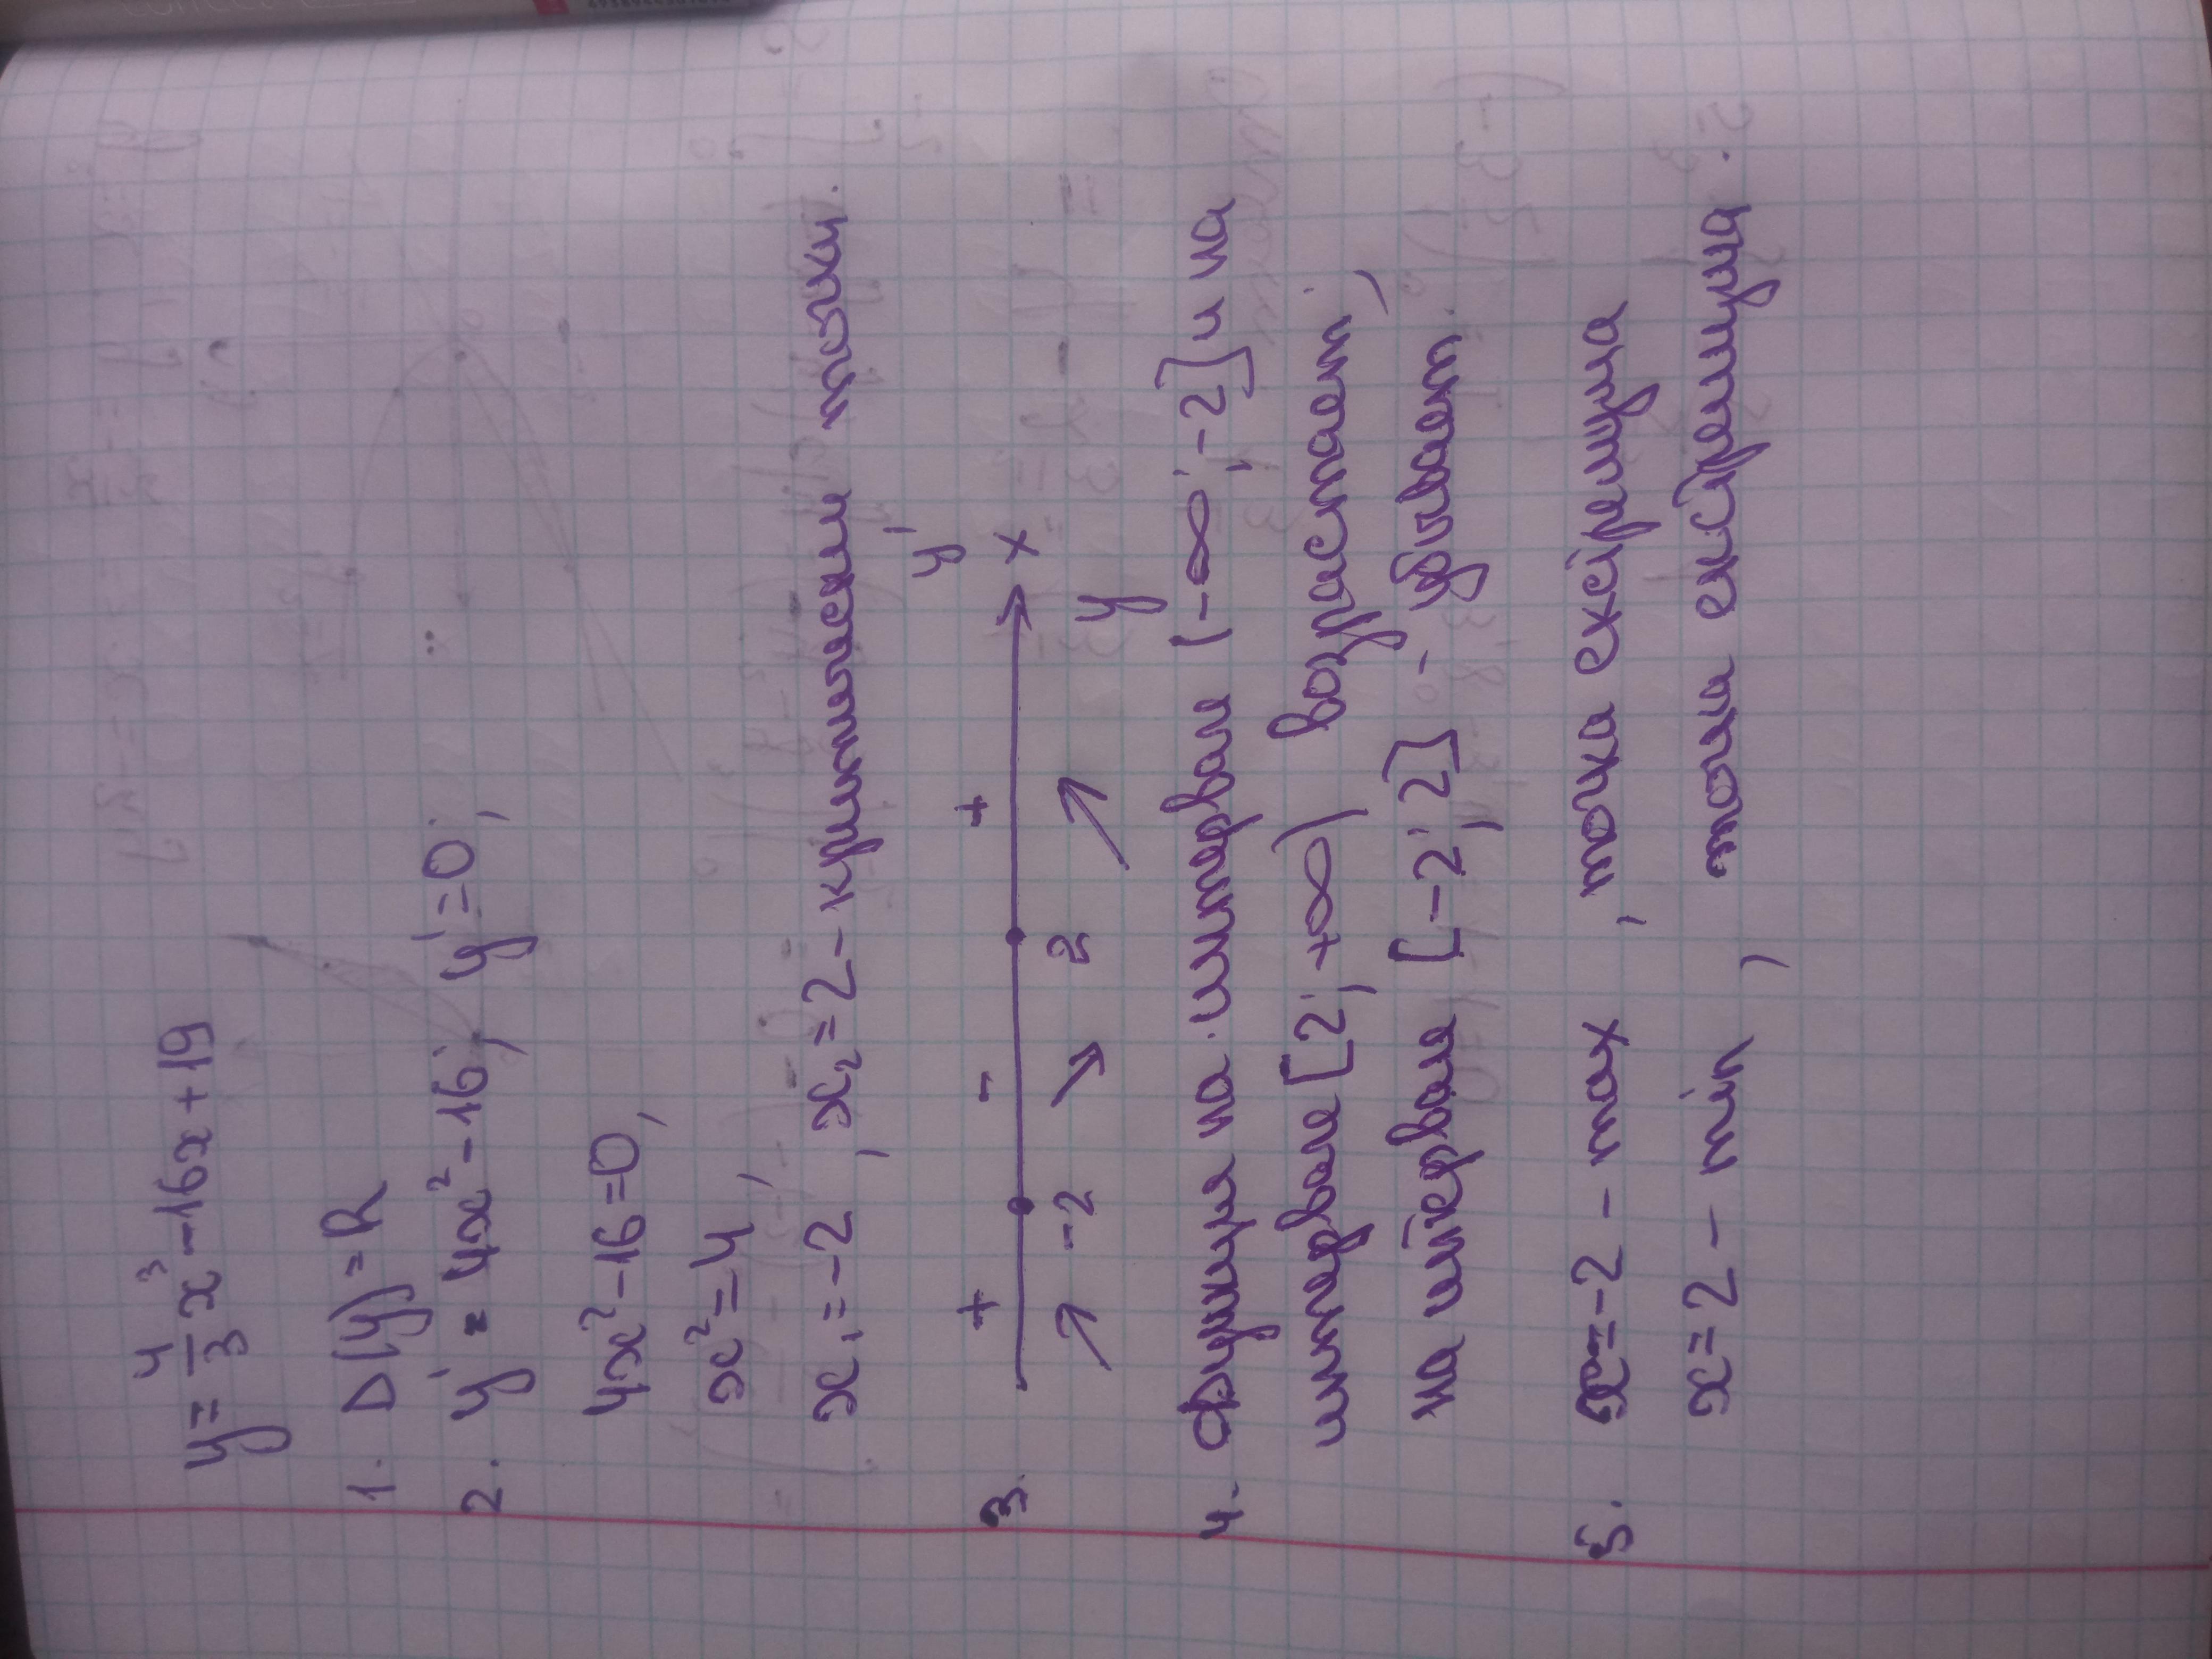 y = 4/3 x³ - 16x + 19
1. D(y) = R
2. y' = 4x² - 16; y' = 0;
4x² - 16 = 0,
x² = 4,
x₁ = -2, x₂ = 2 - критические точки.
3. + - + y'
-2 2 x
y
4. Функция на интервале (-∞; -2] и на
интервале [2; +∞) возрастает;
на интервале [-2; 2] - убывает.
5. x = -2 - max, точка екстремума
x = 2 - min, точка екстремума.